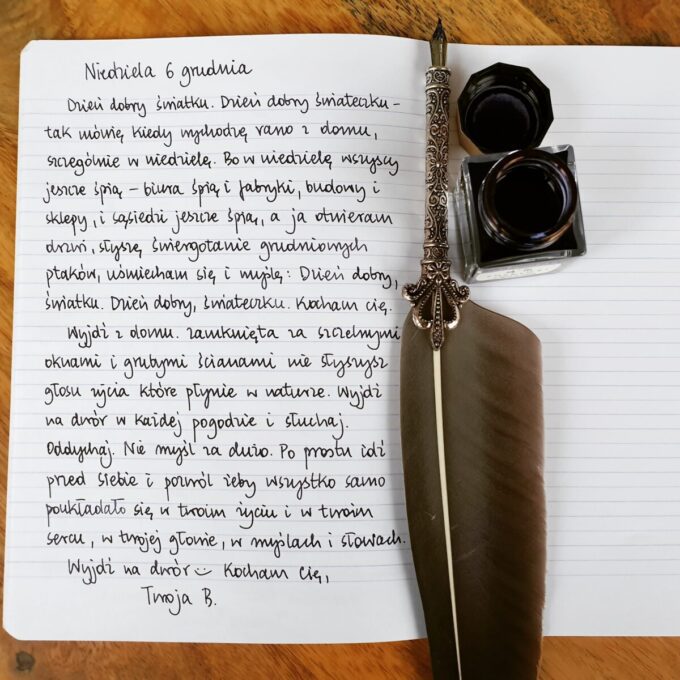 Niedziela 6 grudnia
Dzień dobry światku. Dzień dobry świateczku -
tak mówię kiedy wychodzę rano z domu,
szczególnie w niedzielę. Bo w niedzielę wszyscy
jeszcze śpią - biura śpią i fabryki, budowy i
sklepy, i sąsiedzi jeszcze śpią, a ja otwieram
drzwi, słyszę świergotanie grudniowych
ptaków, uśmiecham się i myślę: Dzień dobry,
światku. Dzień dobry, świateczku. Kocham cię.
Wyjdź z domu. Zamknięta za szczelnymi
oknami i grubymi ścianami nie słyszysz
głosu życia które płynie w naturze. Wyjdź
na dwór w każdej pogodzie i słuchaj.
Oddychaj. Nie myśl za dużo. Po prostu idź
przed siebie i pozwól żeby wszystko samo
poukładało się w twoim życiu i w twoim
sercu, w twojej głowie, w myślach i słowach.
Wyjdź na dwór :) Kocham cię,
Twoja B.